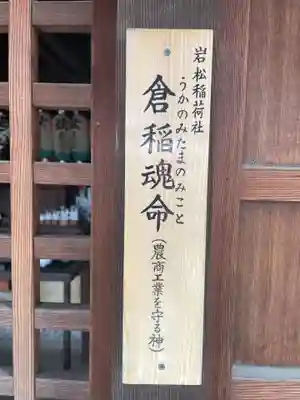 岩松稲荷社
うかのみたまのみこと
倉稲魂命
(農商工業を守る神)